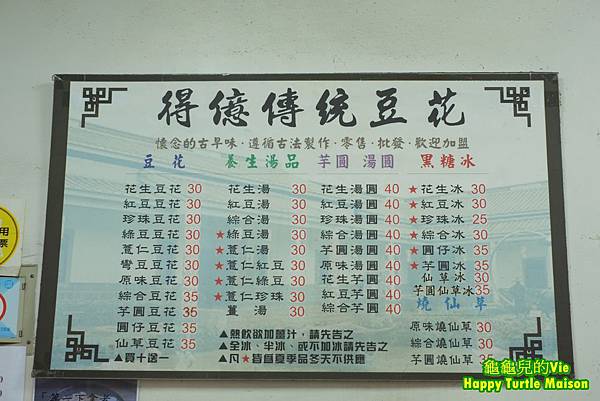 得億傳統豆花
懷念的古早味‧遵循古法製作‧零售‧批發‧歡迎加盟
豆花
花生豆花 30
紅豆豆花 30
珍珠豆花 30
綠豆豆花 30
薏仁豆花 30
彎豆豆花 30
原味豆花 30
綜合豆花 35
芋圓豆花 35
圓仔豆花 35
仙草豆花 35
▲買十送一
養生湯品
花生湯 30
紅豆湯 30
綜合湯 30
★綠豆湯 30
★薏仁湯 30
★薏仁紅豆 30
★薏仁綠豆 30
★薏仁珍珠 30
薑湯 30
芋圓 湯圓
花生湯圓 40
紅豆湯圓 40
珍珠湯圓 40
綜合湯圓 40
芋圓湯圓 40
原味湯圓 40
花生芋圓 40
紅豆芋圓 40
綜合芋圓 40
▲熱飲欲加薑汁,請先告之
▲全冰、半冰、或不加冰請先告之
▲凡★皆為夏季品冬天不供應
黑糖冰
★花生冰 30
★紅豆冰 30
★珍珠冰 25
★綜合冰 30
★圓仔冰 35
★芋圓冰 35
仙草冰 30
芋圓仙草冰 35
燒仙草
原味燒仙草 30
綜合燒仙草 30
芋圓燒仙草 35
用
票
龜龜兒的Vie
Happy Turtle Maison